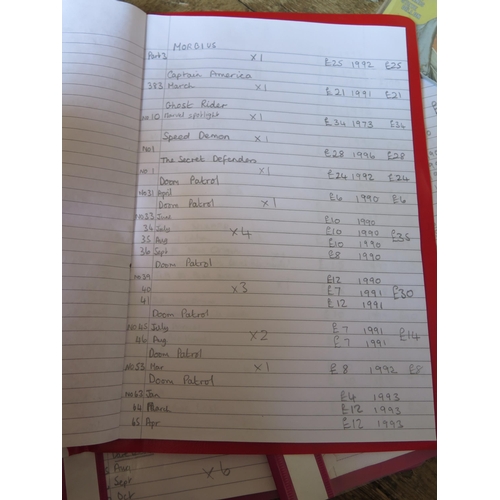 MORBIUS
Part 3 x1 £25 1992 £25
Captain America
383 March x1 £21 1991 £21
Ghost Rider
No 10 Marvel spotlight x1 £34 1973 £34
Speed Demon x1
No1 £28 1996 £28
The Secret Defenders
No 1 x1 £24 1992 £24
Doom Patrol
No31 April £6 1990 £6
Doom Patrol x1
No33 June £10 1990
34 July x4 £10 1990
35 Aug £10 1990
36 Sept £8 1990
Doom Patrol
No39 £12 1990
40 x3 £7 1991 £30
41 £12 1991
Doom Patrol
No45 July x2 £7 1991 £14
46 Aug £7 1991
Doom Patrol
No53 Mar x1 £8 1992 £8
Doom Patrol
No63 Jan £4 1993
64 £12 1993
65 Apr £12 1993
Aug
Sept x6
Oct